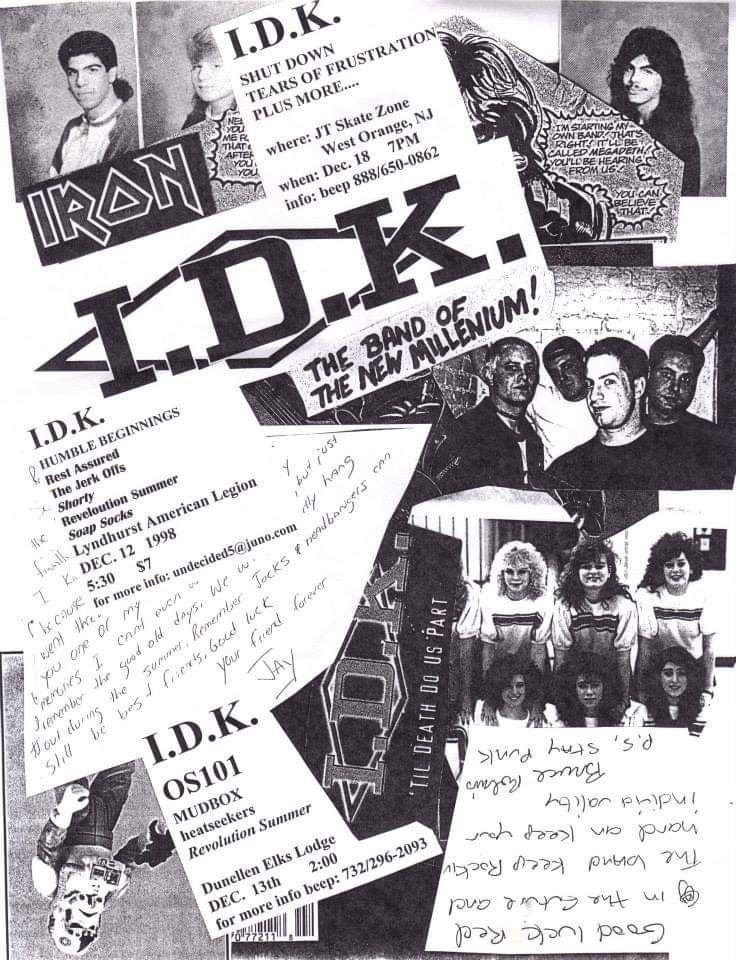 I.D.K.
SHUT DOWN
TEARS OF FRUSTRATION
PLUS MORE....
where: JT Skate Zone
West Orange, NJ
when: Dec. 18 7PM
info: beep 888/650-0862
I'M STARTING MY
OWN BAND! THAT'S
RIGHT! IT'LL BE
CALLED MEGADETH!
YOU'LL BE HEARING
FROM US!
YOU CAN
BELIEVE
THAT!
YOU
THAT
AFTER
YOU
YOU
IRON
I.D.K.
THE BAND OF
THE NEW MILLENIUM!
I.D.K.
HUMBLE BEGINNINGS
Rest Assured
The Jerk Offs
Shorty
Reveloution Summer
Soap Socks
Lyndhurst American Legion
DEC. 12 1998
5:30 $7
for more info: undecided5@juno.com
but just
hang
because
went thru.
you one of my
memories I cant even
remember the good old days. We w
out during the summer. Remember Jocks & headbangers can
still be best friends. Good luck
your friend forever
JAY
I.D.K.
'TIL DEATH DO US PART
I.D.K.
OS101
MUDBOX
heatseekers
Revolution Summer
Dunellen Elks Lodge
DEC. 13th 2:00
for more info beep: 732/296-2093
0 77211 8
Good luck Reed
in the future and
The band keep Rockin
hard an keep your
individuality
Bruce
P.S. STAY PUNK